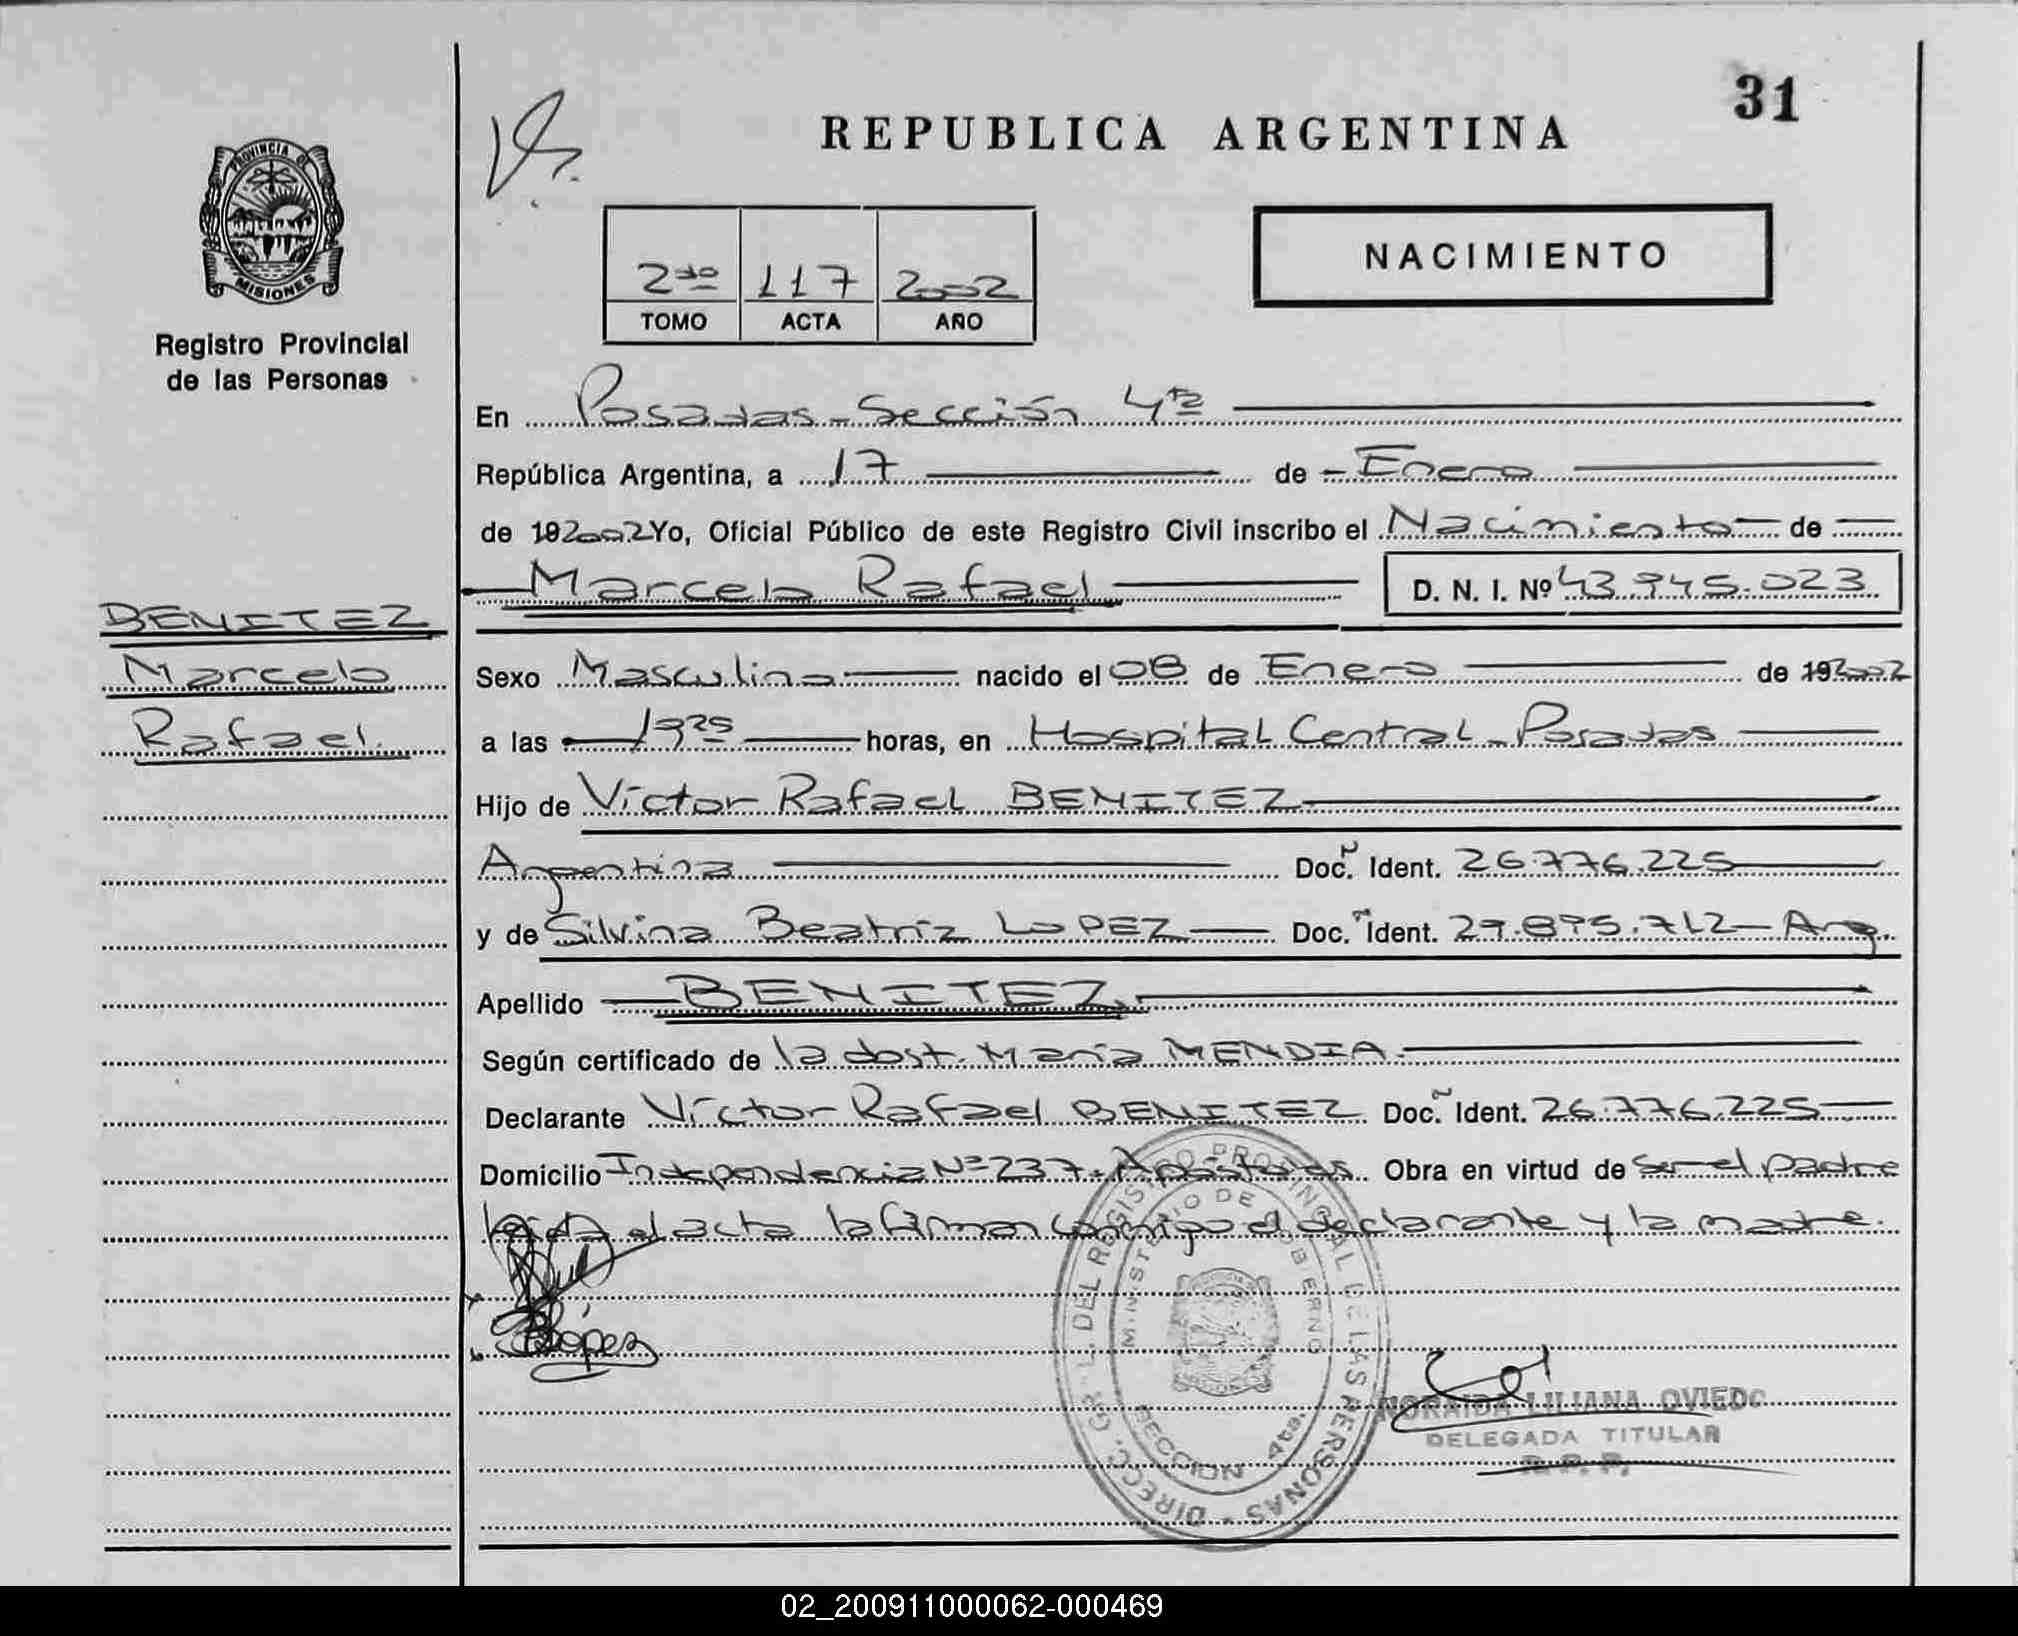 31
REPUBLICA ARGENTINA
PROVINCIA DE
MISIONES
Registro Provincial
de las Personas
NACIMIENTO
2do 117 2002
TOMO ACTA AÑO
En Posadas - Sección 4ta
República Argentina, a 17 de Enero
de 192002 Yo, Oficial Público de este Registro Civil inscribo el Nacimiento de
Marcelo Rafael D. N. I. Nº 43.945.023
BENITEZ
Marcelo
Rafael.
Sexo Masculino nacido el 08 de Enero de 192002
a las 1925 horas, en Hospital Central - Posadas
Hijo de Víctor Rafael BENITEZ
Argentina Doc. Ident. 26.776.225
y de Silvina Beatríz LOPEZ Doc. Ident. 27.895.712 - Arg.
Apellido BENITEZ
Según certificado de la obst. María MENDIA
Declarante Víctor Rafael BENITEZ Doc. Ident. 26.776.225
Domicilio Independencia Nº 237 - Apóstoles. Obra en virtud de ser el padre
leída el acta la firman conmigo el declarante y la madre.
López
DIRECC. GRAL. DEL REGISTRO PROVINCIAL DE LAS PERSONAS
MINISTERIO DE GOBIERNO
SECCION 4ta.
LILIANA OVIEDO
DELEGADA TITULAR
R. P. P.
02_200911000062-000469